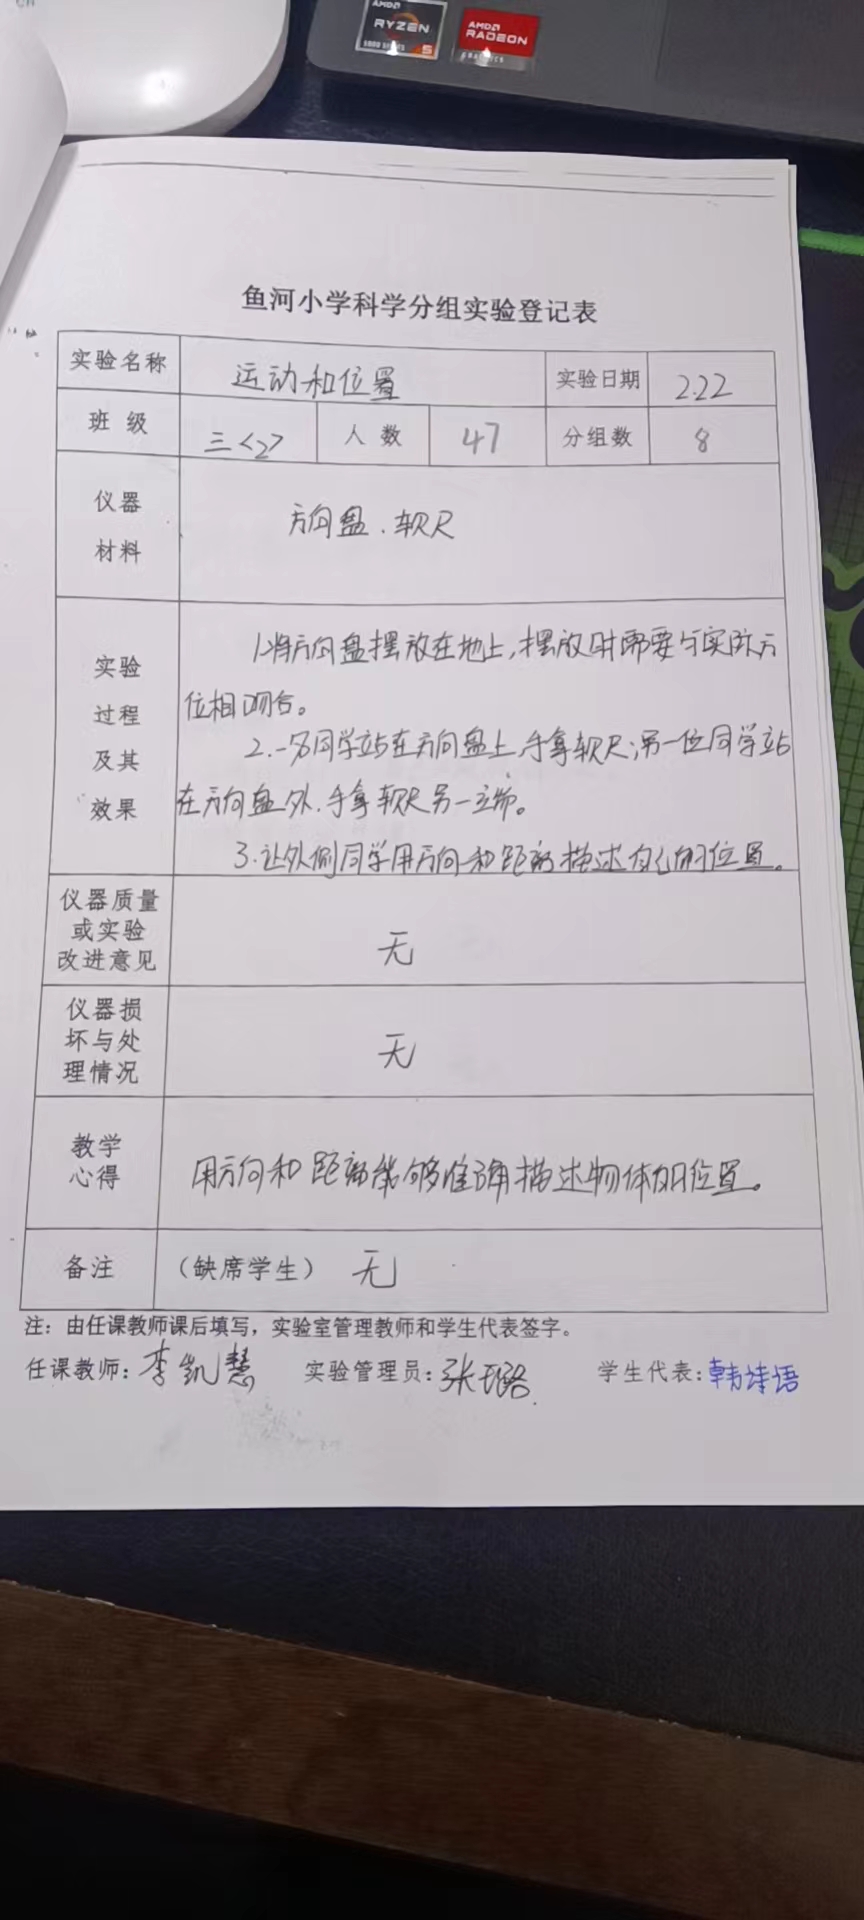 AMD
RYZEN
5000 SERIES 5
AMD
RADEON
GRAPHICS
鱼河小学科学分组实验登记表
实验名称 运动和位置 实验日期 2.22
班 级 三<2> 人 数 47 分组数 8
仪器
材料
方向盘、软尺
实验
过程
及其
效果
1.将方向盘摆放在地上,摆放时需要与实际方
位相吻合。
2.一名同学站在方向盘上,手拿软尺;另一位同学站
在方向盘外,手拿软尺另一端。
3.让外侧同学用方向和距离描述自己的位置。
仪器质量
或实验
改进意见
无
仪器损
坏与处
理情况
无
教学
心得
用方向和距离能够准确描述物体的位置。
备注 (缺席学生) 无
注:由任课教师课后填写,实验室管理教师和学生代表签字。
任课教师:李凯慧 实验管理员:张璐 学生代表:韩诗语